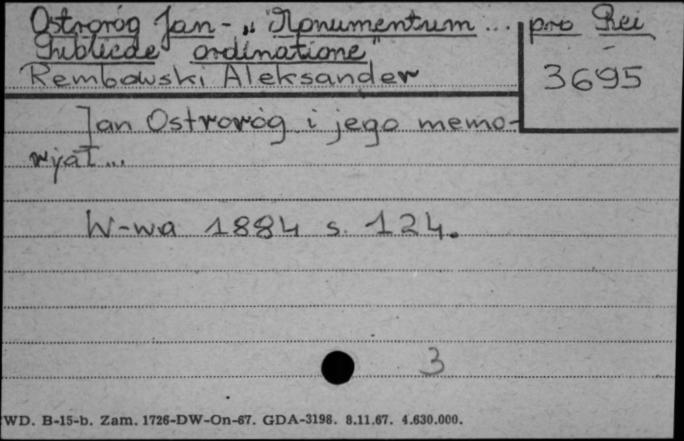 Ostroróg Jan - „Monumentum ... pro Rei
Publicae ordinatione"
Rembowski Aleksander
3695
Jan Ostroróg i jego memo-
ryał...
W-wa 1884 s. 124.
3
WD. B-15-b. Zam. 1726-DW-On-67. GDA-3198. 8.11.67. 4.630.000.